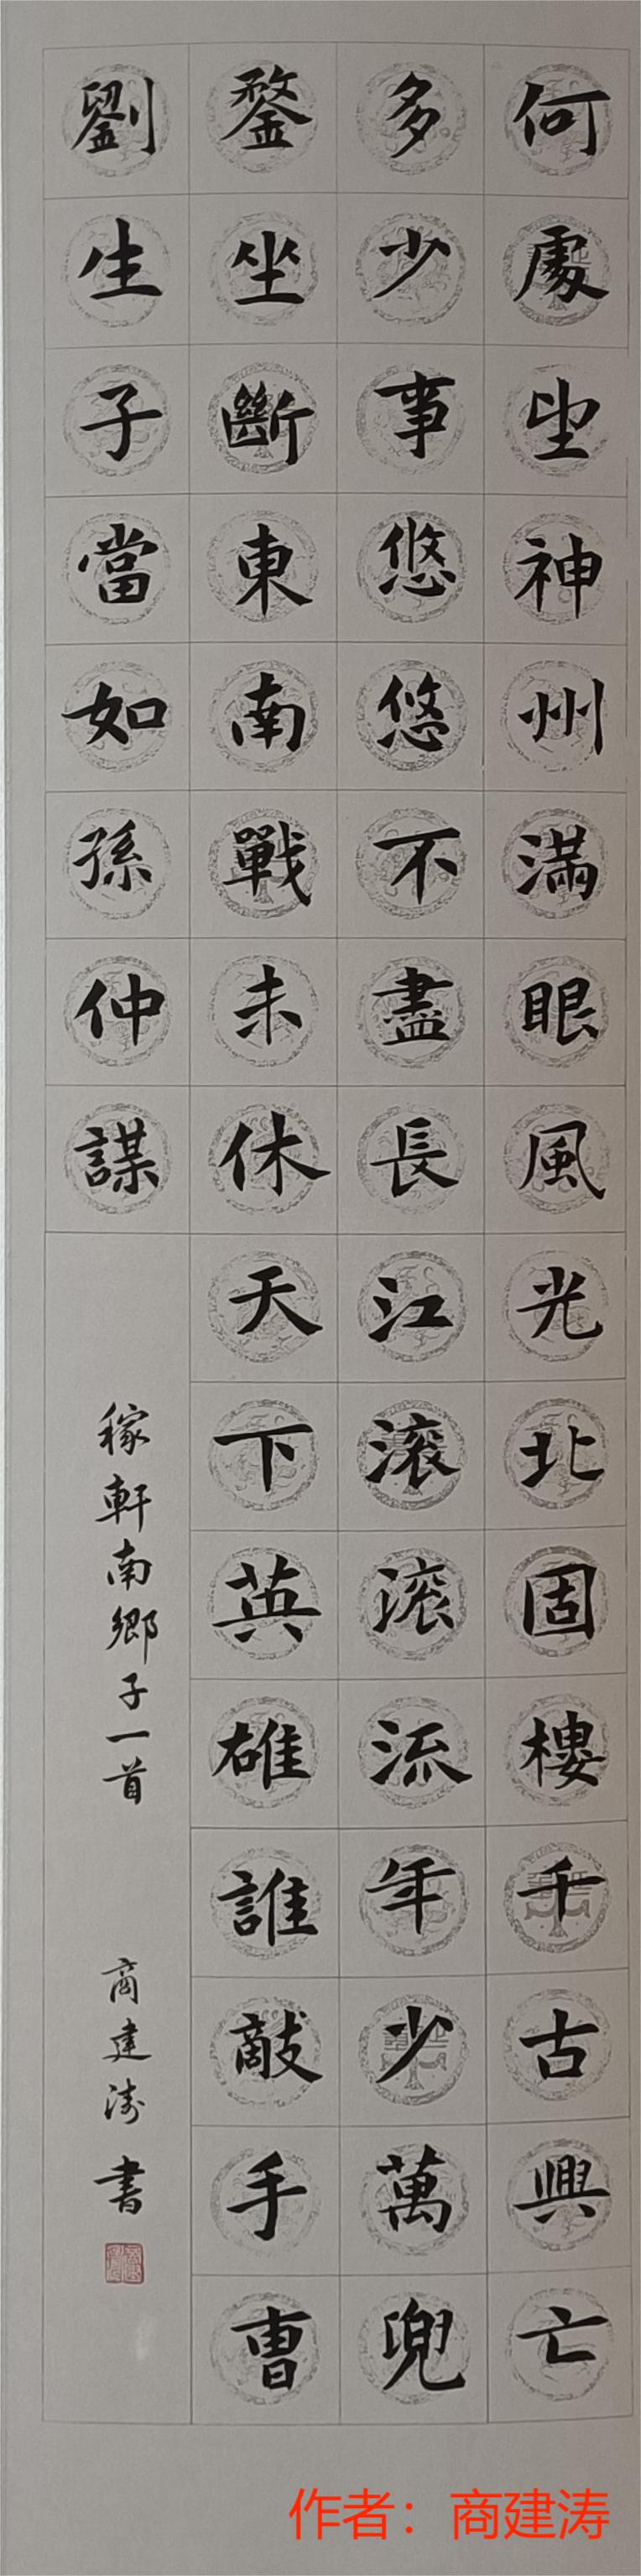 何處望神州滿眼風光北固樓千古興亡
多少事悠悠不盡長江滚滚流年少萬兜
鍪坐斷東南戰未休天下英雄誰敵手曹
劉生子當如孫仲謀
稼軒南鄉子一首
商建涛書
作者：商建涛